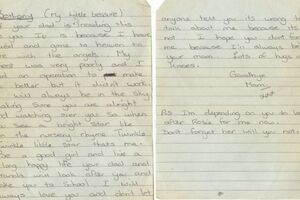 Bethany (my little treasure)
your dad is reading this
you it is because I have
and gone to heaven to
with the angels. My
chest was very poorly and I
had an operation to make
better but it didn't work.
I will always be in the sky
making sure you are alright
and watching over you so when
see a bright star like
in the nursery rhyme Twinkle
Twinkle little star that's me.
be a good girl and live a
long happy life your dad and
will look after you and
take you to School. I will
always love you and don't let
anyone tell you it's wrong to
talk about me because it's
not. I hope you don't for
me because I'm always be
your mam. Lots of hugs a
kisses.
Goodbye
Mam
As I'm depending on you to
after Rosie for me now.
Don't forget her will you not